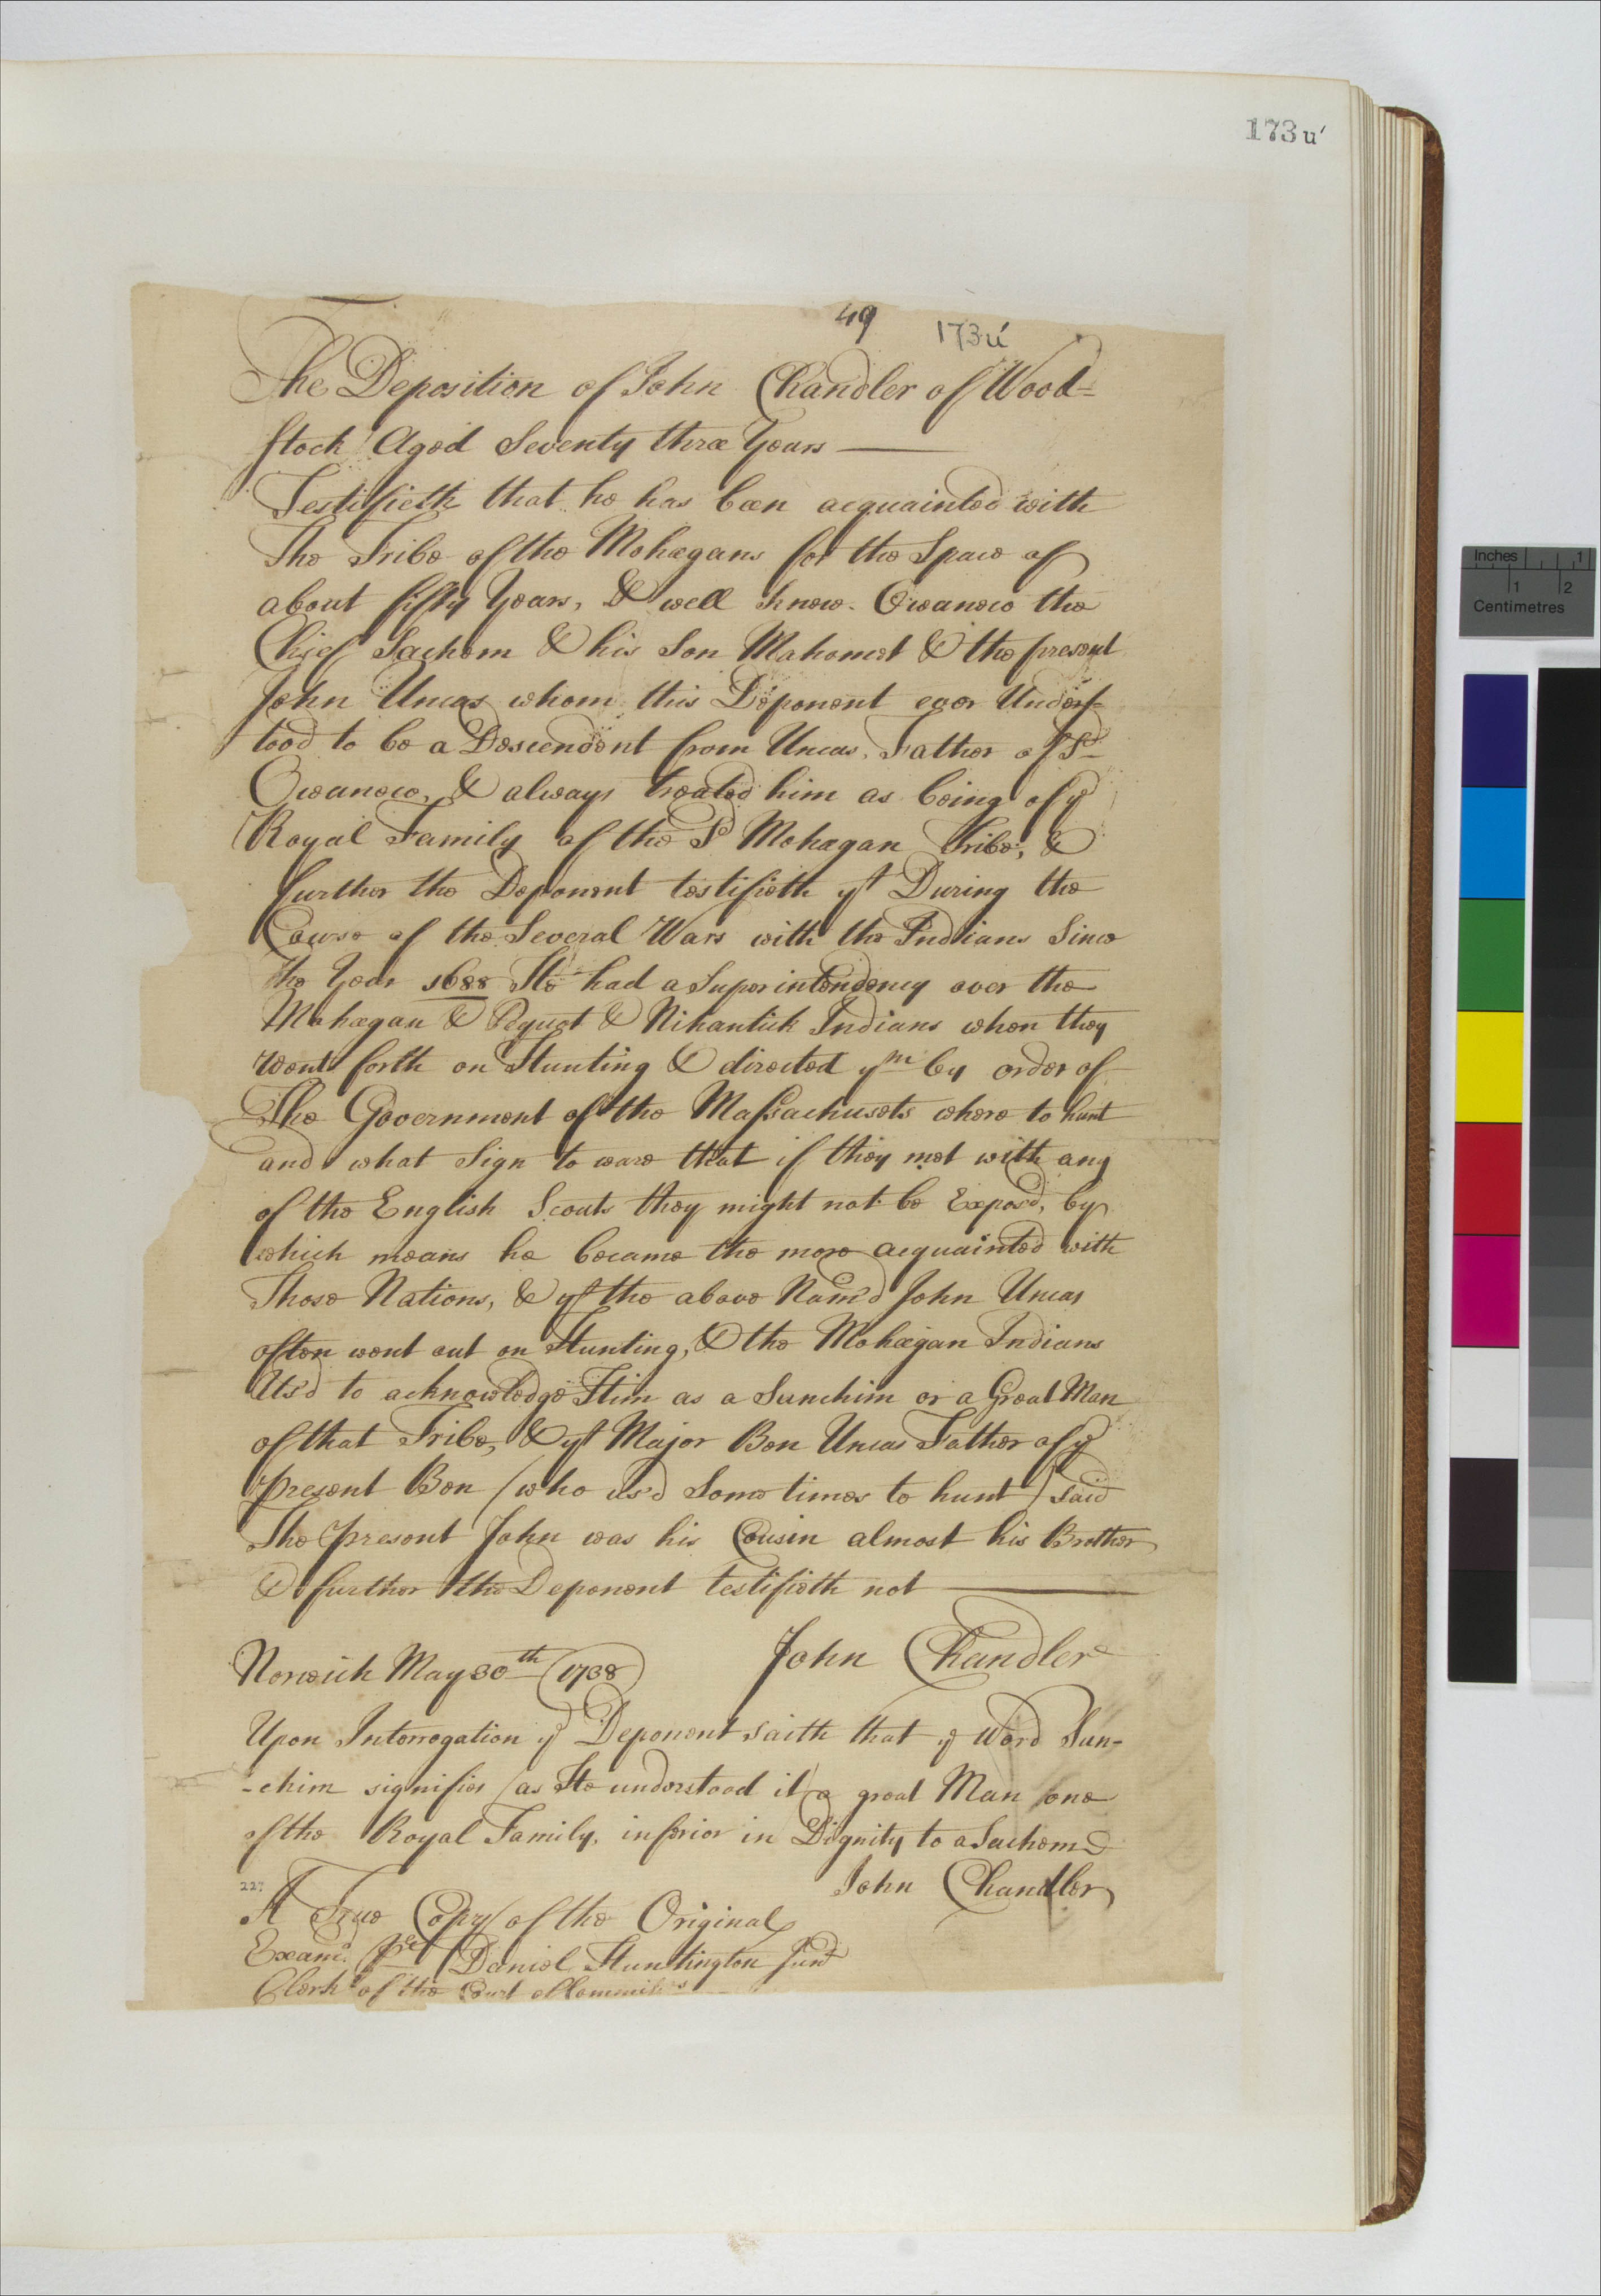 173 u'
49 173 u'
The Deposition of John Chandler of Wood-
stock Aged Seventy three Years —
Testifieth that he has been acquainted with
The Tribe of the Mohegans for the Space of
about fifty Years, & well knew Owaneco the
Chief Sachem & his Son Mahomet & the present
John Uncas whom this Deponent ever Unders-
tood to be a Descendent from Uncas, Father of Sd
Owaneco, & always treated him as being of ye
Royal Family of the Sd Mohegan Tribe, &
further the Deponent testifieth yt During the
Course of the Several Wars with the Indians Since
the Year 1688 He had a Superintendency over the
Mohegan & Pequot & Nihantick Indians when they
went forth on Hunting & directed ym by order of
The Government of the Massachusets where to hunt
and what Sign to ware that if they met with any
of the English Scouts they might not be Expos'd, by
which means he became the more acquainted with
Those Nations, & yt the above Nam'd John Uncas
often went out on Hunting, & the Mohegan Indians
Us'd to acknowledge Him as a Sunchim or a Great Man
of that Tribe, & yt Major Ben Uncas Father of ye
present Ben (who us'd Some times to hunt) Said
The present John was his Cousin almost his Brother
& further the Deponent testifieth not —
Norwich May 30th (1738) John Chandler
Upon Interrogation ye Deponent saith that ye Word Sun-
-chim signifies (as He understood it) a great Man one
of the Royal Family, inferior in Dignity to a Sachem
John Chandler
227
A True Copy of the Original
Examd. Per Daniel Huntington Junr
Clerk of the Court of Commiss
Inches 1
1 2
Centimetres